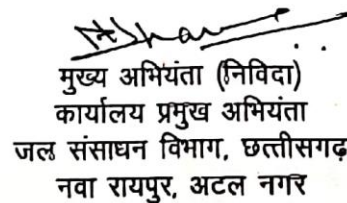 मुख्य अभियंता (निविदा)
कार्यालय प्रमुख अभियंता
जल संसाधन विभाग, छत्तीसगढ़
नवा रायपुर, अटल नगर